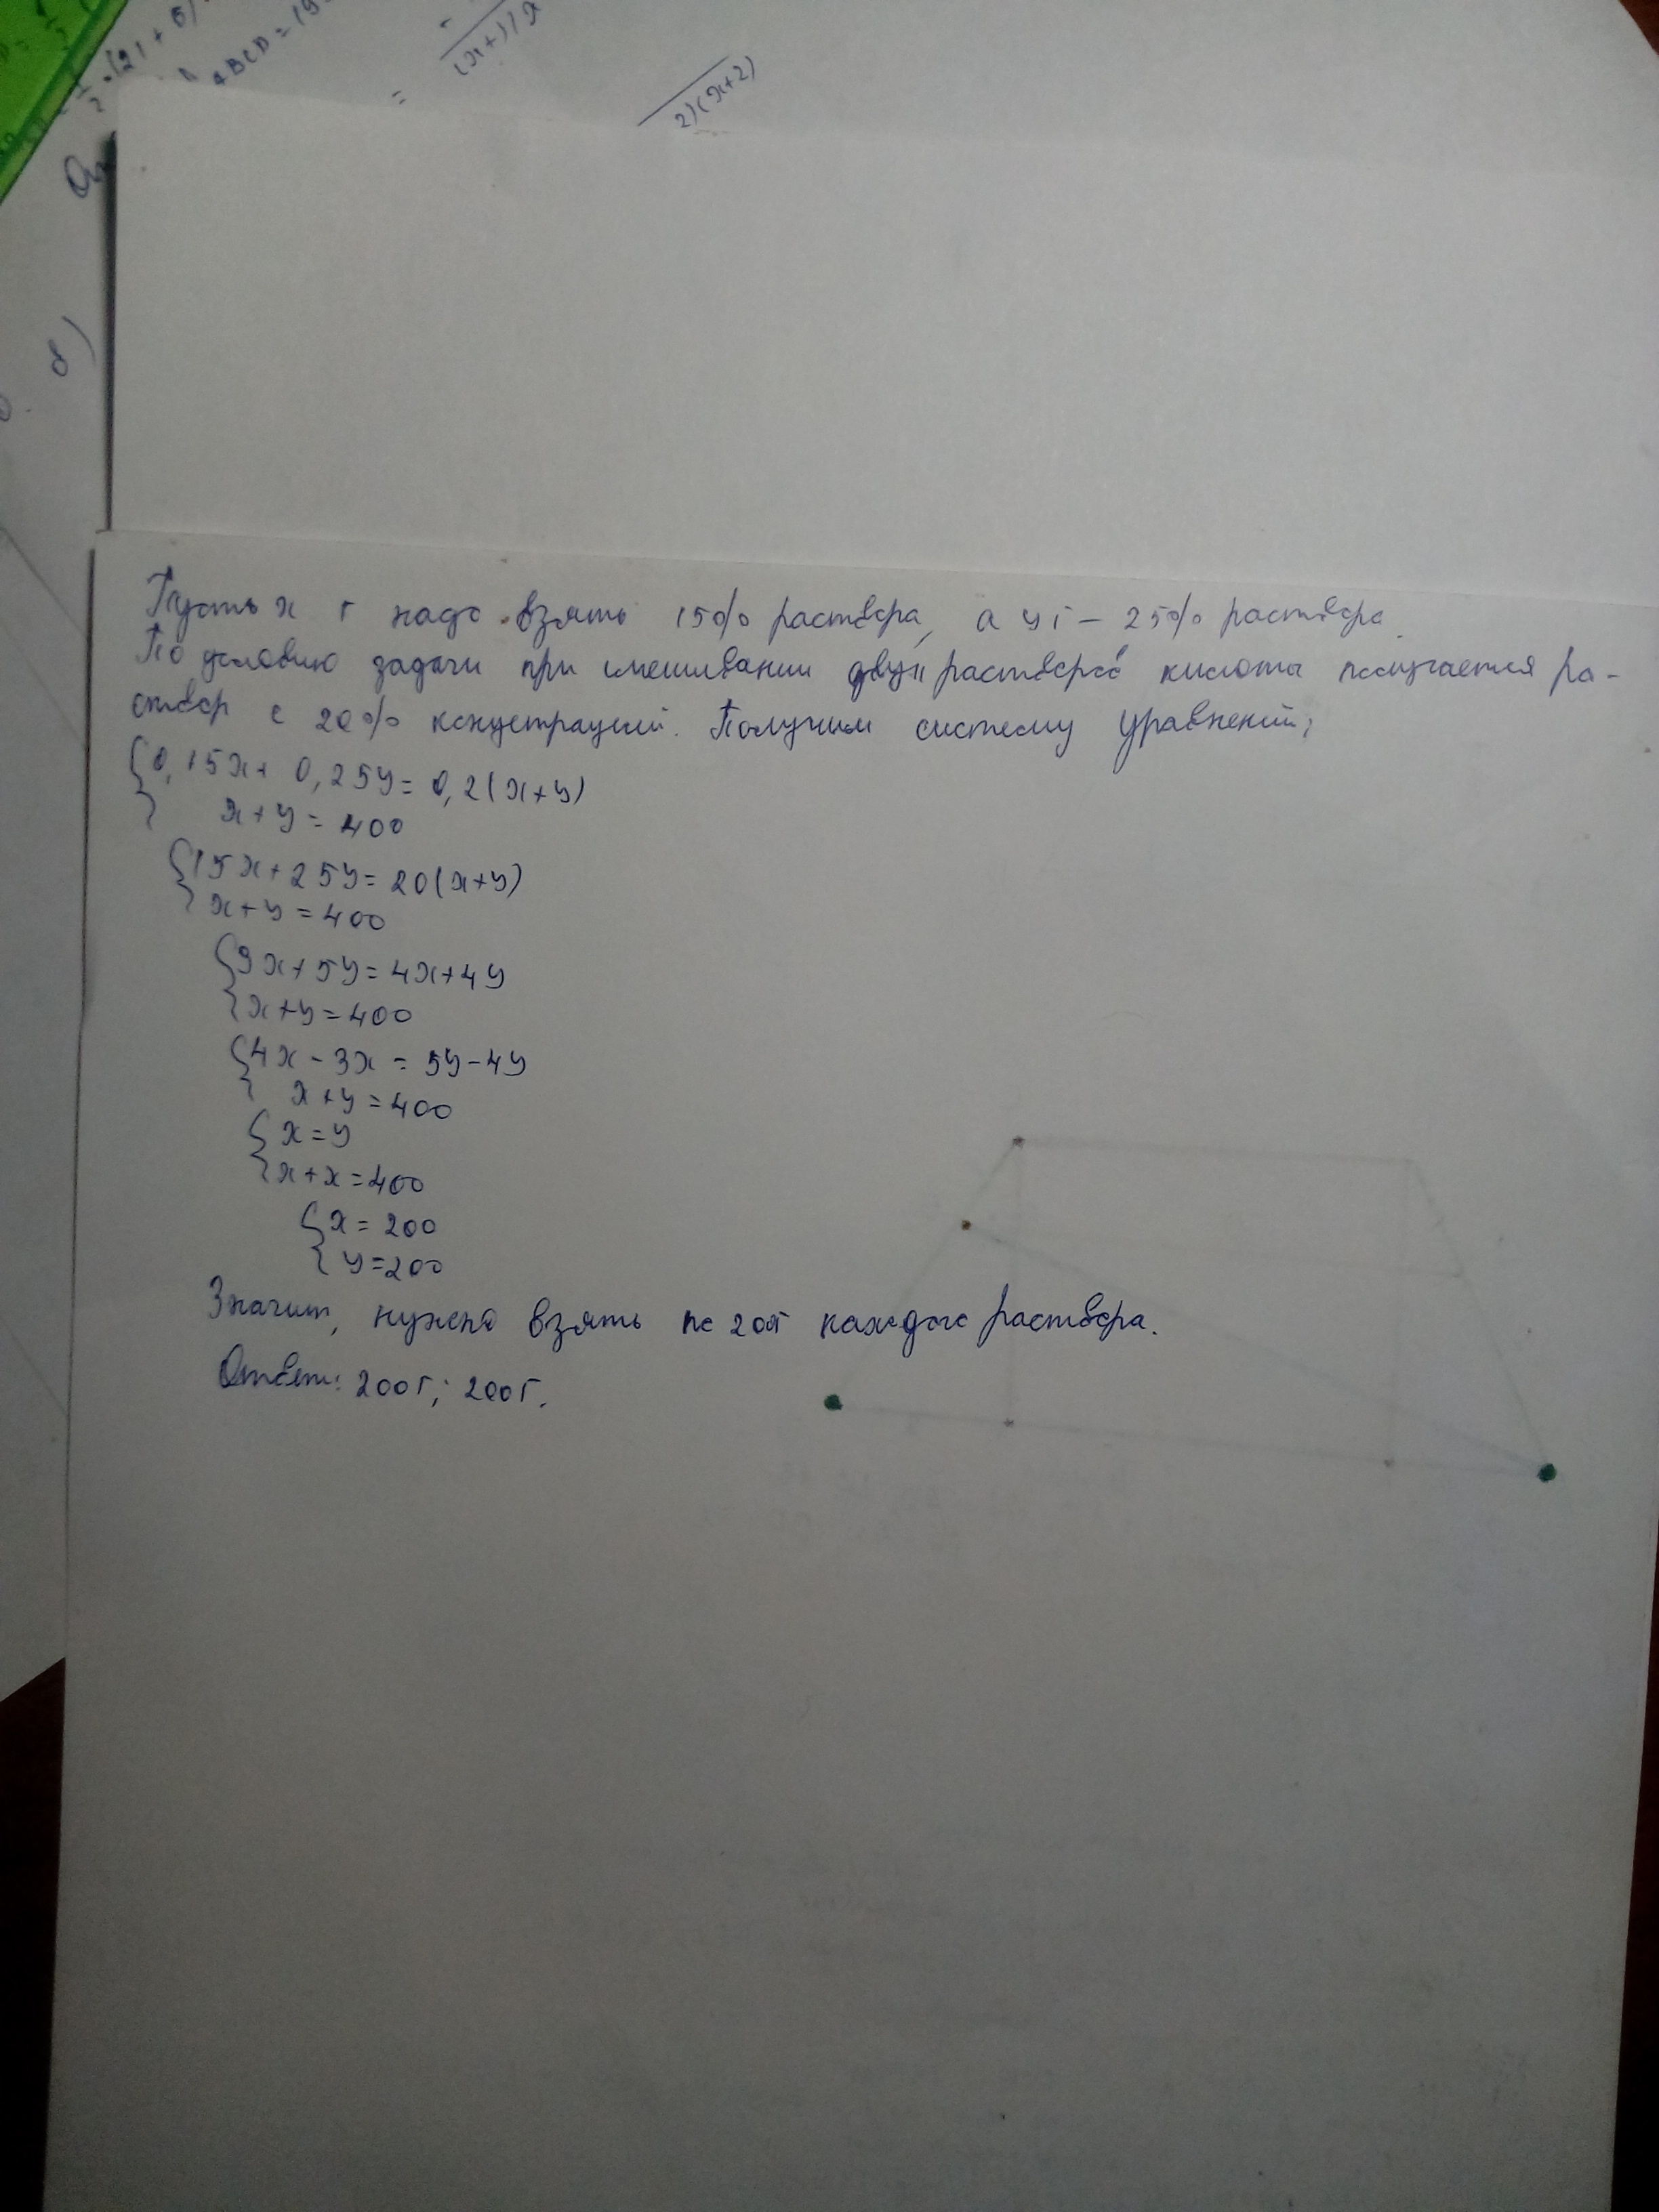 (21+
ABCD=19
=
(x+1)(x
2)(x+2)
8)
Пусть x г надо взять 15% раствора, а y г – 25% раствора.
По условию задачи при смешивании двух растворов кислоты получается ра-
створ с 20% концетрацией. Получим систему уравнений:
{0,15x+ 0,25y= 0,2(x+y)
x+y = 400
{15x+25y= 20(x+y)
x+y =400
{3x+5y=4x+4y
x+y=400
{4x-3x = 5y-4y
x+y =400
{x=y
x+x=400
{x= 200
y=200
Значит, нужно взять по 200г каждого раствора.
Ответ: 200г; 200г.